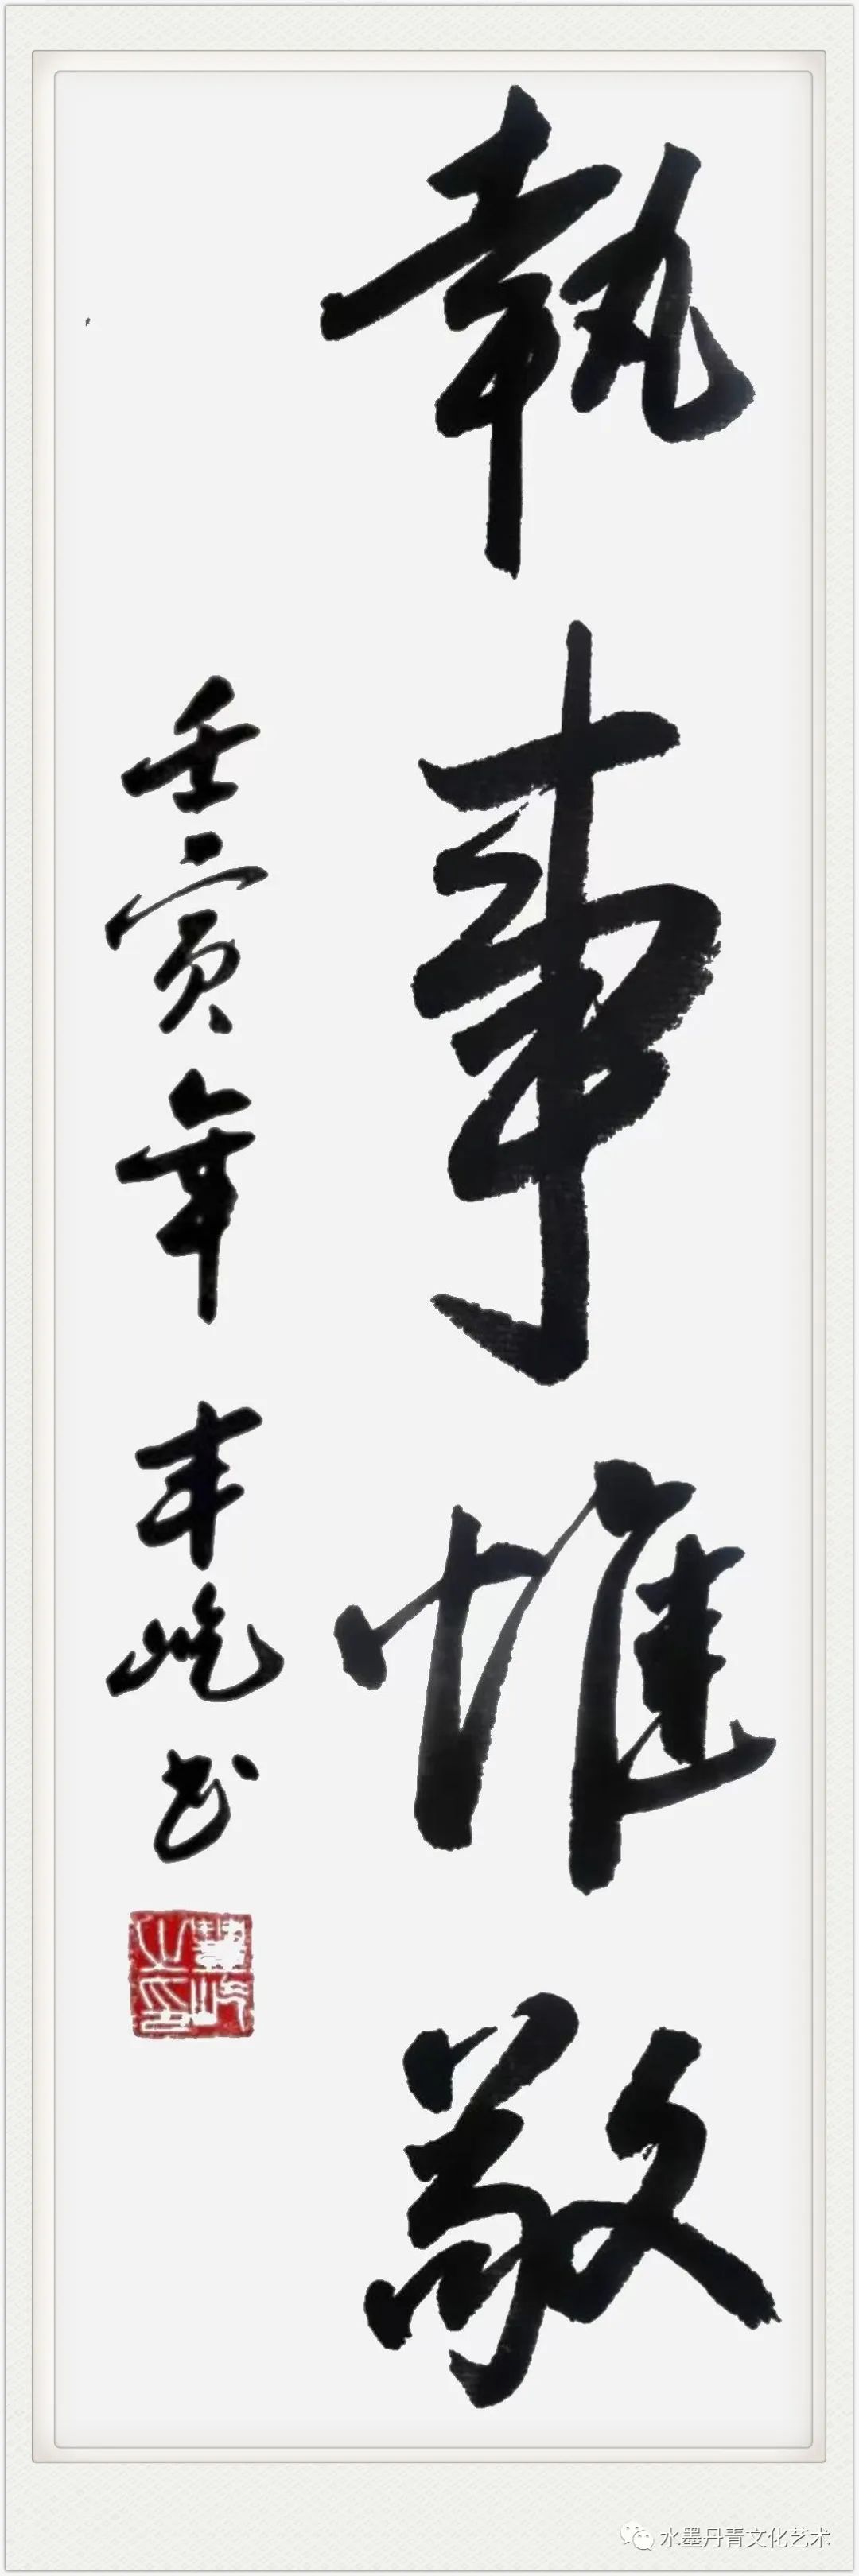 執事惟敬
壬寅年 丰屹书
水墨丹青文化艺术